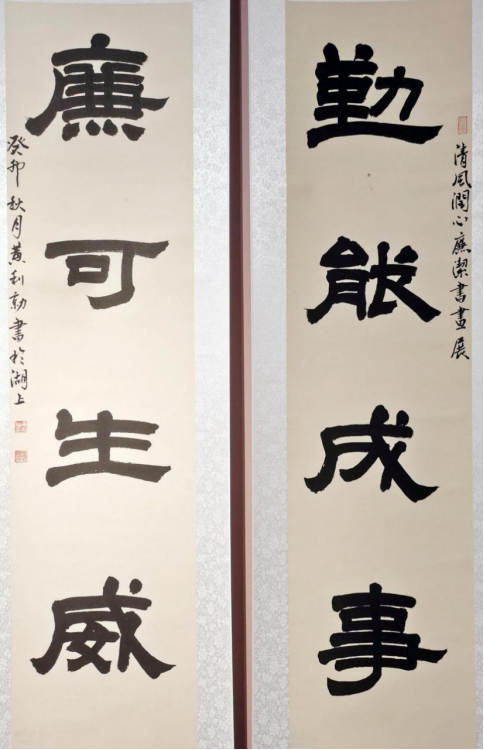 清风潤心廉潔書畫展
勤能成事
廉可生威
癸卯秋月黄利書於湖上